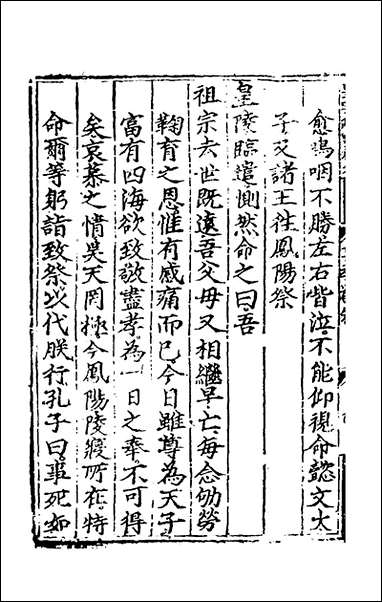 愈嗚咽不勝左右皆泣不能仰視命懿文太
子又諸王徃鳳陽祭
皇陵臨遣惻然命之曰吾
祖宗去世既遠吾父母又相繼早亡每念劬勞
鞠育之恩惟有感痛而已今日雖尊為天子
富有四海欲致敬盡孝為一日之奉不可得
矣哀慕之情昊天罔極今鳳陽陵寢所在特
命爾等躬詣致祭以代朕行孔子曰事死如